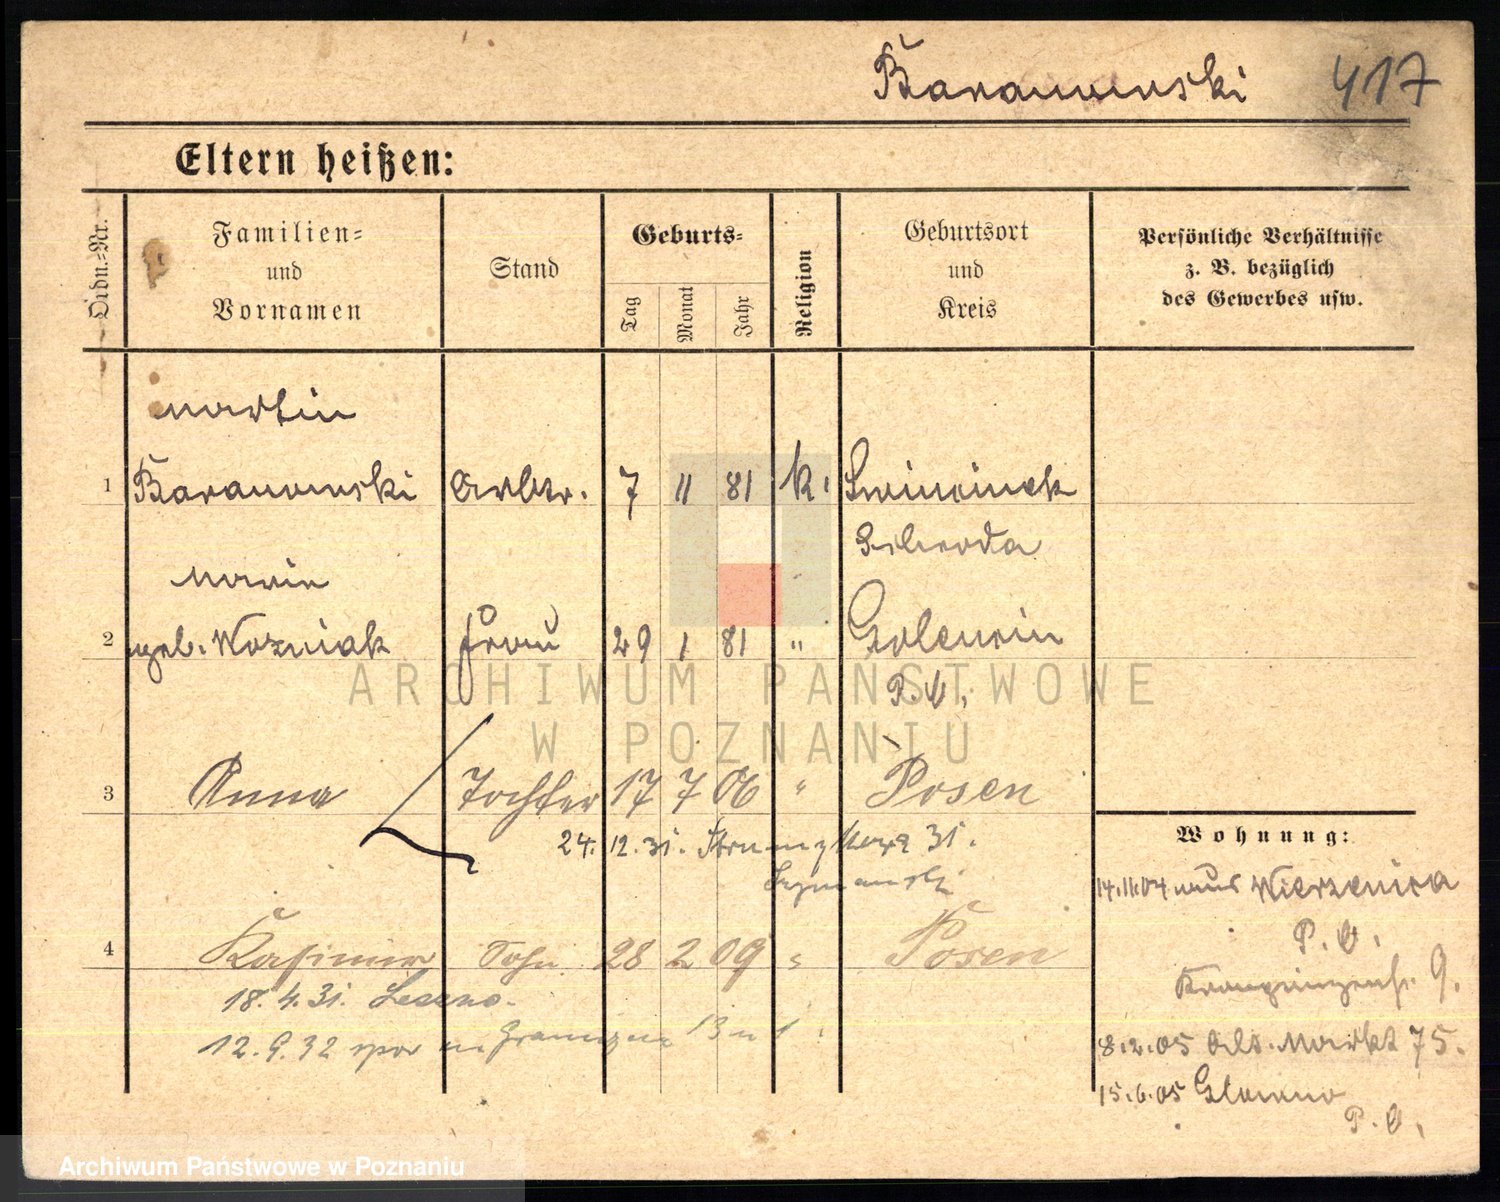 Baranowski 417
Eltern heißen:
Ordn.-Nr.
Familien-
und
Vornamen
Stand
Geburts-
Tag
Monat
Jahr
Religion
Geburtsort
und
Kreis
Persönliche Verhältnisse
z. B. bezüglich
des Gewerbes usw.
Martin
1 Baranowski Arbtr. 7 11 81 k.
Schroda
Marie
2 geb. Wozniak Frau 29 1 81 "
P. O.
3 Anna Tochter 17 7 06 " Posen
24. 12. 31. 31.
Szymanski
4 Kasimir Sohn 28 2 09 " Posen
18. 4. 31. Leszno.
12. 9. 32
Wohnung:
14.11.04 aus Wierzenica
P. O.
Kronprinzenstr. 9.
8.2.05 Alt. Markt 75.
15.6.05 Glowno
P. O.
ARCHIWUM PAŃSTWOWE
W POZNANIU
Archiwum Państwowe w Poznaniu